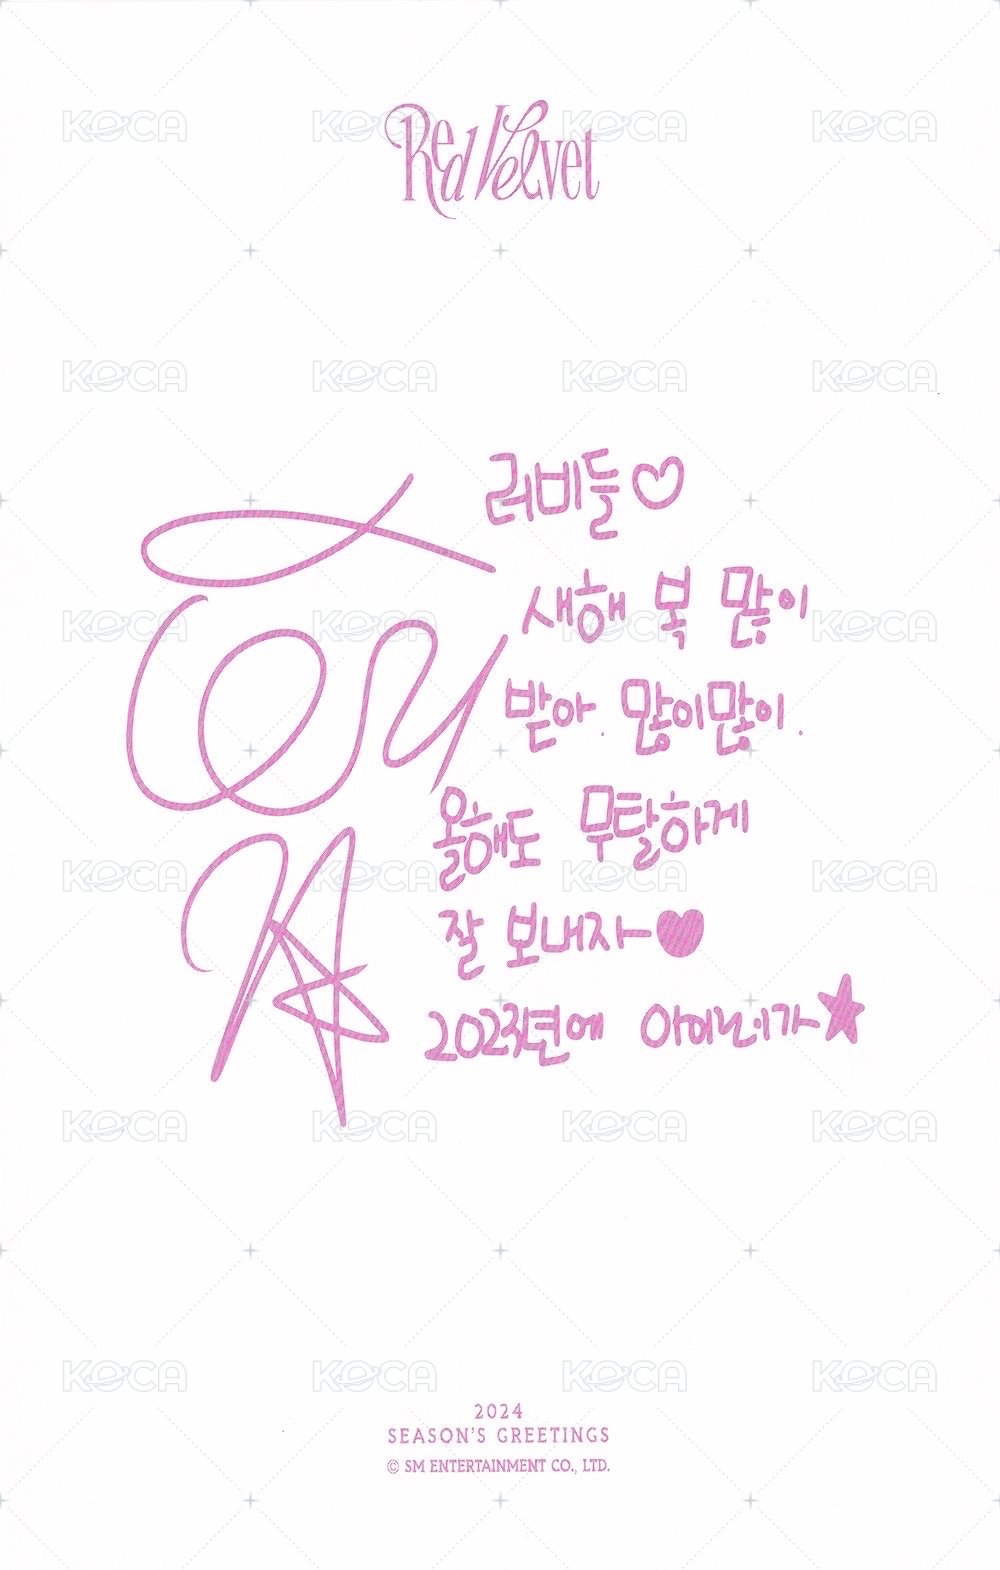 Red Velvet
러비들♡
새해 복 많이
받아. 많이많이.
올해도 무탈하게
잘 보내자-♥
2023년에 아이린이가★
2024
SEASON'S GREETINGS
© SM ENTERTAINMENT CO., LTD.
KOCA